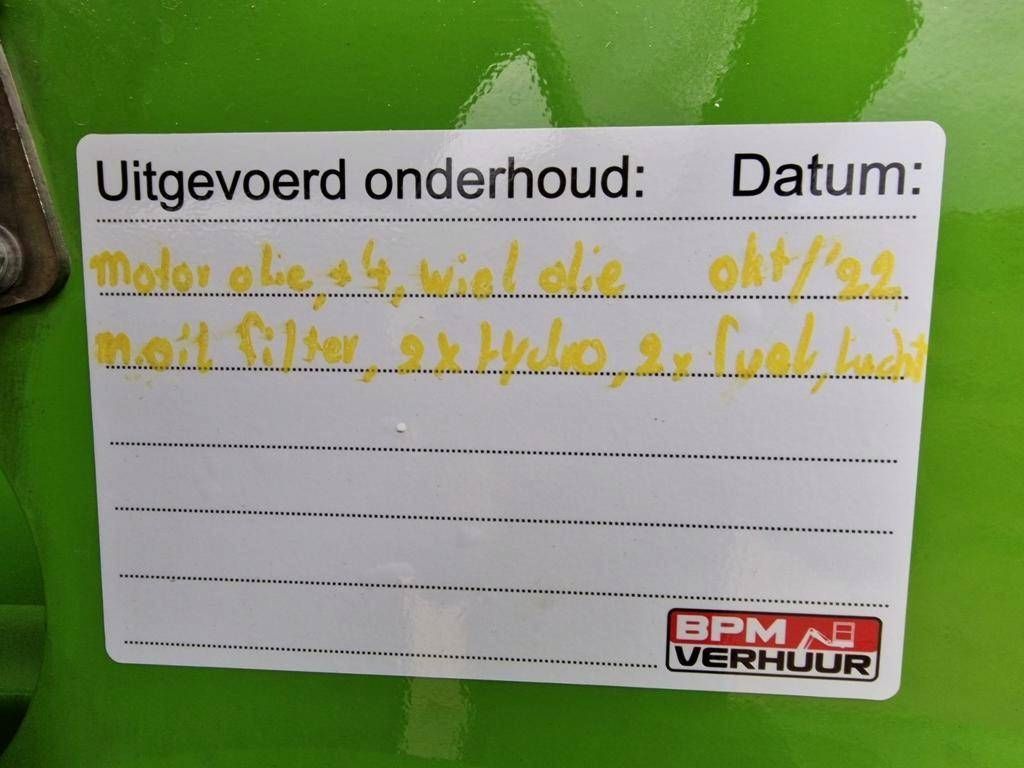 Uitgevoerd onderhoud: Datum:
motor olie, + 4, wiel olie okt/'22
m.oil filter, 2x Hydro, 2x fuel, lucht
BPM
VERHUUR